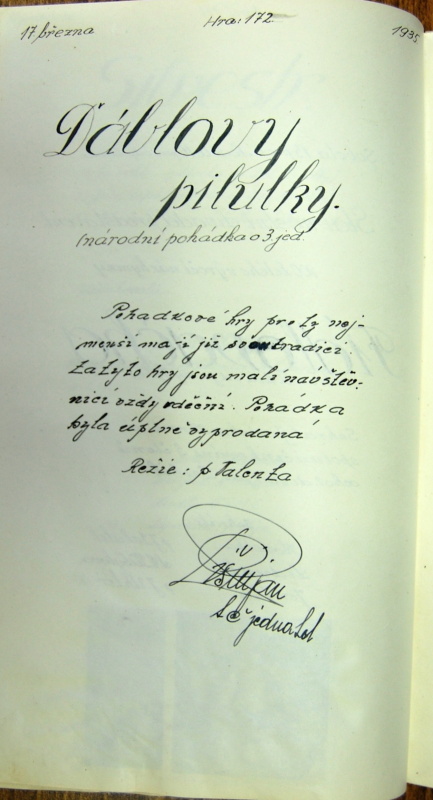 17 března Hra: 172 1935
Ďáblovy
pilulky.
(národní pohádka o 3 jed.
Pohádkové hry pro ty nej-
menší mají již svou tradici.
Za tyto hry jsou malí návštěv-
níci vždy vděční. Pohádka
byla úplně vyprodaná
Režie: p Valenta
t. č. jednatel